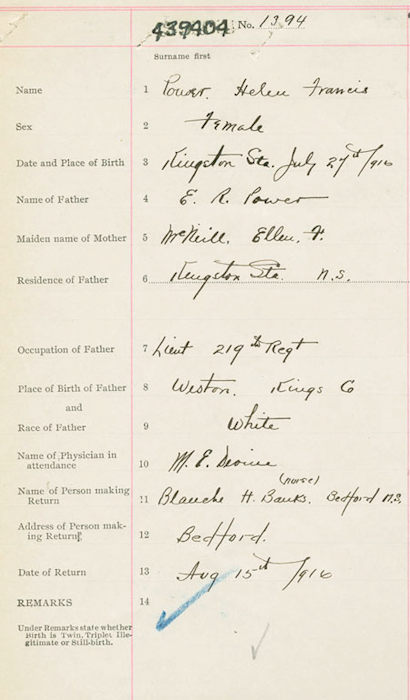 439404 No. 1394
Surname first
Name 1 Power. Helen Francis
Sex 2 Female
Date and Place of Birth 3 Kingston Sta. July 27th/916
Name of Father 4 E. R. Power
Maiden name of Mother 5 McNeill, Ellen, F.
Residence of Father 6 Kingston Sta. N.S.
Occupation of Father 7 Lieut 219th Regt
Place of Birth of Father 8 Weston. Kings Co
and
Race of Father 9 White
Name of Physician in
attendance 10 M. E.
(nurse)
Name of Person making
Return 11 Blanche H. Banks. Bedford N.S.
Address of Person mak-
ing Return 12 Bedford.
Date of Return 13 Aug 15th /916
REMARKS 14
Under Remarks state whether
Birth is Twin, Triplet, Ille-
gitimate or Still-birth.